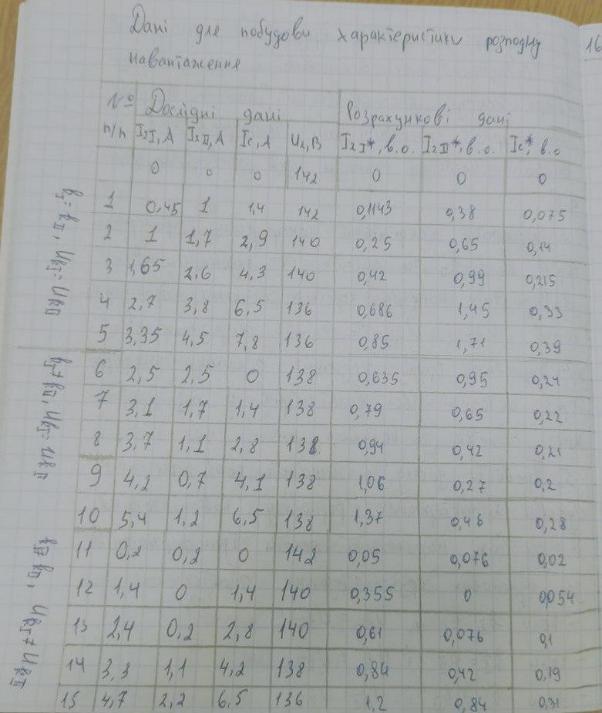 Дані для побудови характеристики розподілу
навантаження
16
№ п/п Дослідні дані Розрахункові дані
I₂I, A I₂II, A Iс, A U₂, B I₂I*, в.о. I₂II*, в.о. Iс*, в.о
0 0 0 142 0 0 0
1 0,45 1 1,4 142 0,1143 0,38 0,075
2 1 1,7 2,9 140 0,25 0,65 0,14
3 1,65 2,6 4,3 140 0,42 0,99 0,215
4 2,7 3,8 6,5 136 0,686 1,45 0,33
5 3,35 4,5 7,8 136 0,85 1,71 0,39
6 2,5 2,5 0 138 0,635 0,95 0,24
7 3,1 1,7 1,4 138 0,79 0,65 0,22
8 3,7 1,1 2,8 138 0,94 0,42 0,21
9 4,2 0,7 4,1 138 1,06 0,27 0,2
10 5,4 1,2 6,5 138 1,37 0,46 0,28
11 0,2 0,2 0 142 0,05 0,076 0,02
12 1,4 0 1,4 140 0,355 0 0,054
13 2,4 0,2 2,8 140 0,61 0,076 0,1
14 3,3 1,1 4,2 138 0,84 0,42 0,19
15 4,7 2,2 6,5 136 1,2 0,84 0,31